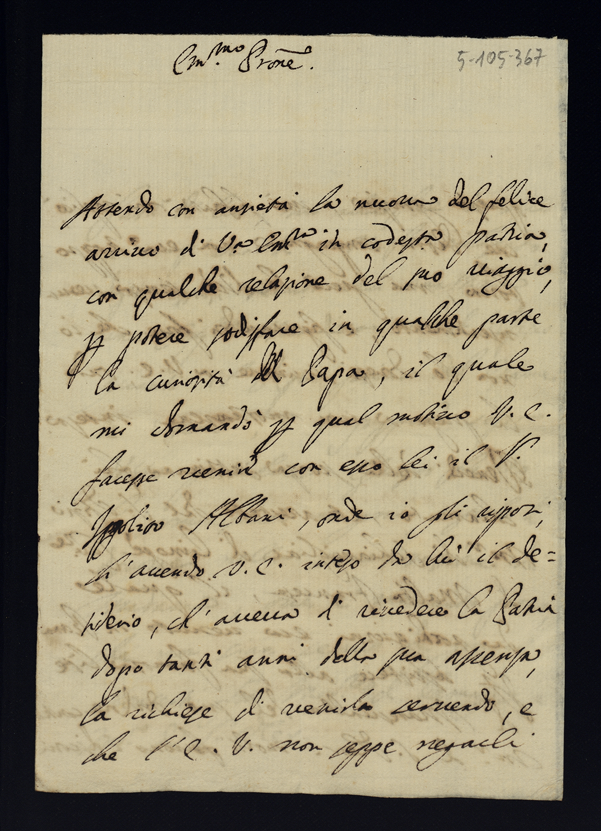 5-105-367
Em.mo Prone.
Attendo con ansietà la nuova del felice
arrivo di V.ra Em.za in codesta patria,
con qualche relazione del suo viaggio,
p potere sodisfare in qualche parte
la curiosità del Papa, il quale
mi domandò p qual motivo V. E.
facesse venire con esso lei il P.
Ippolito Albani, onde io gli risposi,
ch'avendo V. E. inteso da lui il de=
siderio, ch'aveva di rivedere la Patria
dopo tanti anni della sua assenza,
la richiese di venirla servendo, e
che l'E. V. non seppe negarli